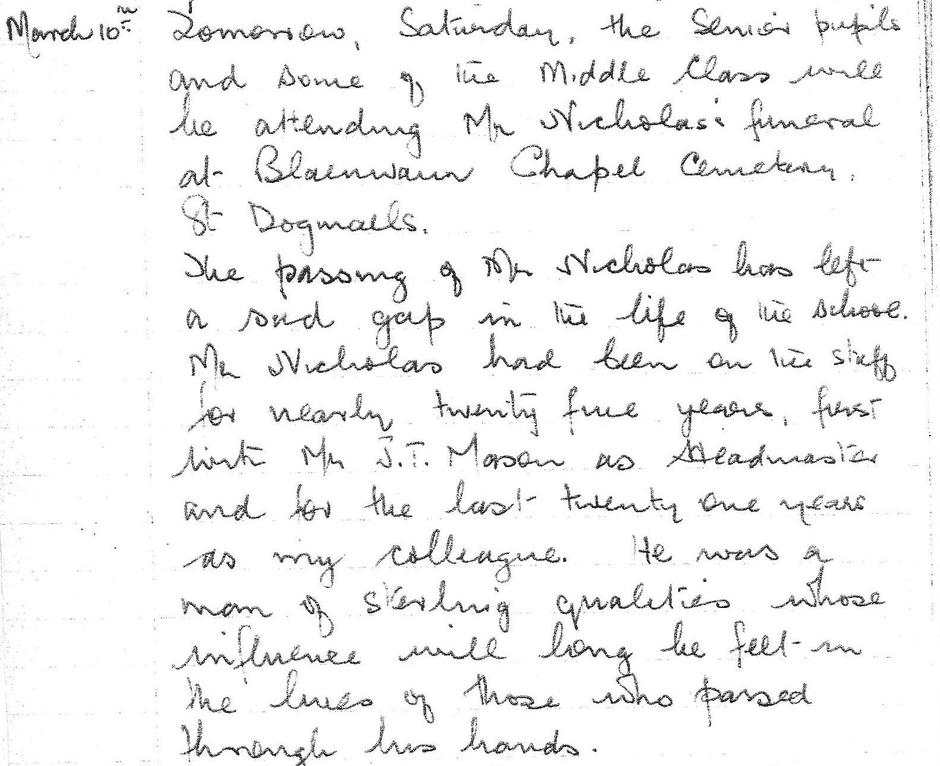 March 10th Tomorrow, Saturday, the Senior pupils
and some of the Middle Class will
be attending Mr Nicholas' funeral
at Blaenwaun Chapel Cemetery,
St Dogmaels.
The passing of Mr Nicholas has left
a sad gap in the life of the school.
Mr Nicholas had been on the staff
for nearly twenty five years, first
with Mr J.T. Mason as Headmaster
and for the last twenty one years
as my colleague. He was a
man of sterling qualities whose
influence will long be felt in
the lives of those who passed
through his hands.